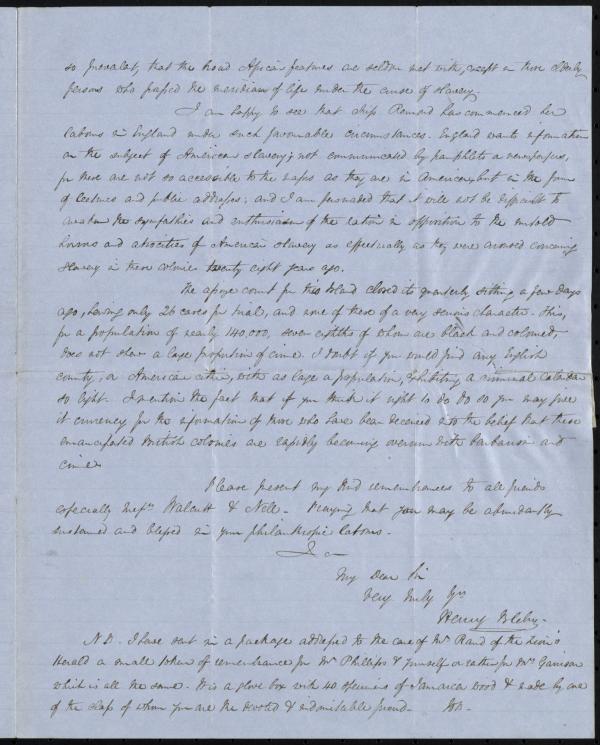 so prevalent, that the broad African features are seldom met with, except in those elderly
persons who passed the meridian of life under the curse of slavery.
I am happy to see that Miss Remond has commenced her
labours in England under such favourable circumstances. England wants information
on the subject of American slavery; not communicated by pamphlets or newspapers,
for these are not so accessible to the masses as they are in America, but in the form
of lectures and public addresses; and I am persuaded that it will not be difficult to
awaken the sympathies and enthusiasm of the nation in opposition to the untold
horrors and atrocities of American slavery as effectually as they were aroused concerning
slavery in these colonies twenty eight years ago.
The assize court for this Island closed its quarterly sitting a few days
ago, having only 26 cases for trial, and none of these of a very serious character. This,
for a population of nearly 140,000, seven eighths of whom are black and colored,
does not show a large proportion of crime. I doubt if you would find any English
county, or American with as large a population, exhibiting a criminal calendar
so light. I mention the fact that if you think it right to do so you may give
it currency for the information of those who have been deceived into the belief that these
emancipated British colonies are rapidly becoming overrun with barbarism and
crime.
Please present my kind remembrances to all friends
especially Messrs Walcutt & Nell. Praying that you may be abundantly
sustained and blessed in your philanthropic labours.
I am
My Dear Sir
Very truly Yrs
Henry Bleby.
N.B. I have sent in a package addressed to the care of Mr Rand of the Zion's
Herald a small token of remembrance for Mr Phillips & yourself or rather for Mrs Garrison
which is all the same. It is a glove box with 40 specimens of Jamaica wood & made by one
of the class of whom you are the devoted & indomitable friend. HB.